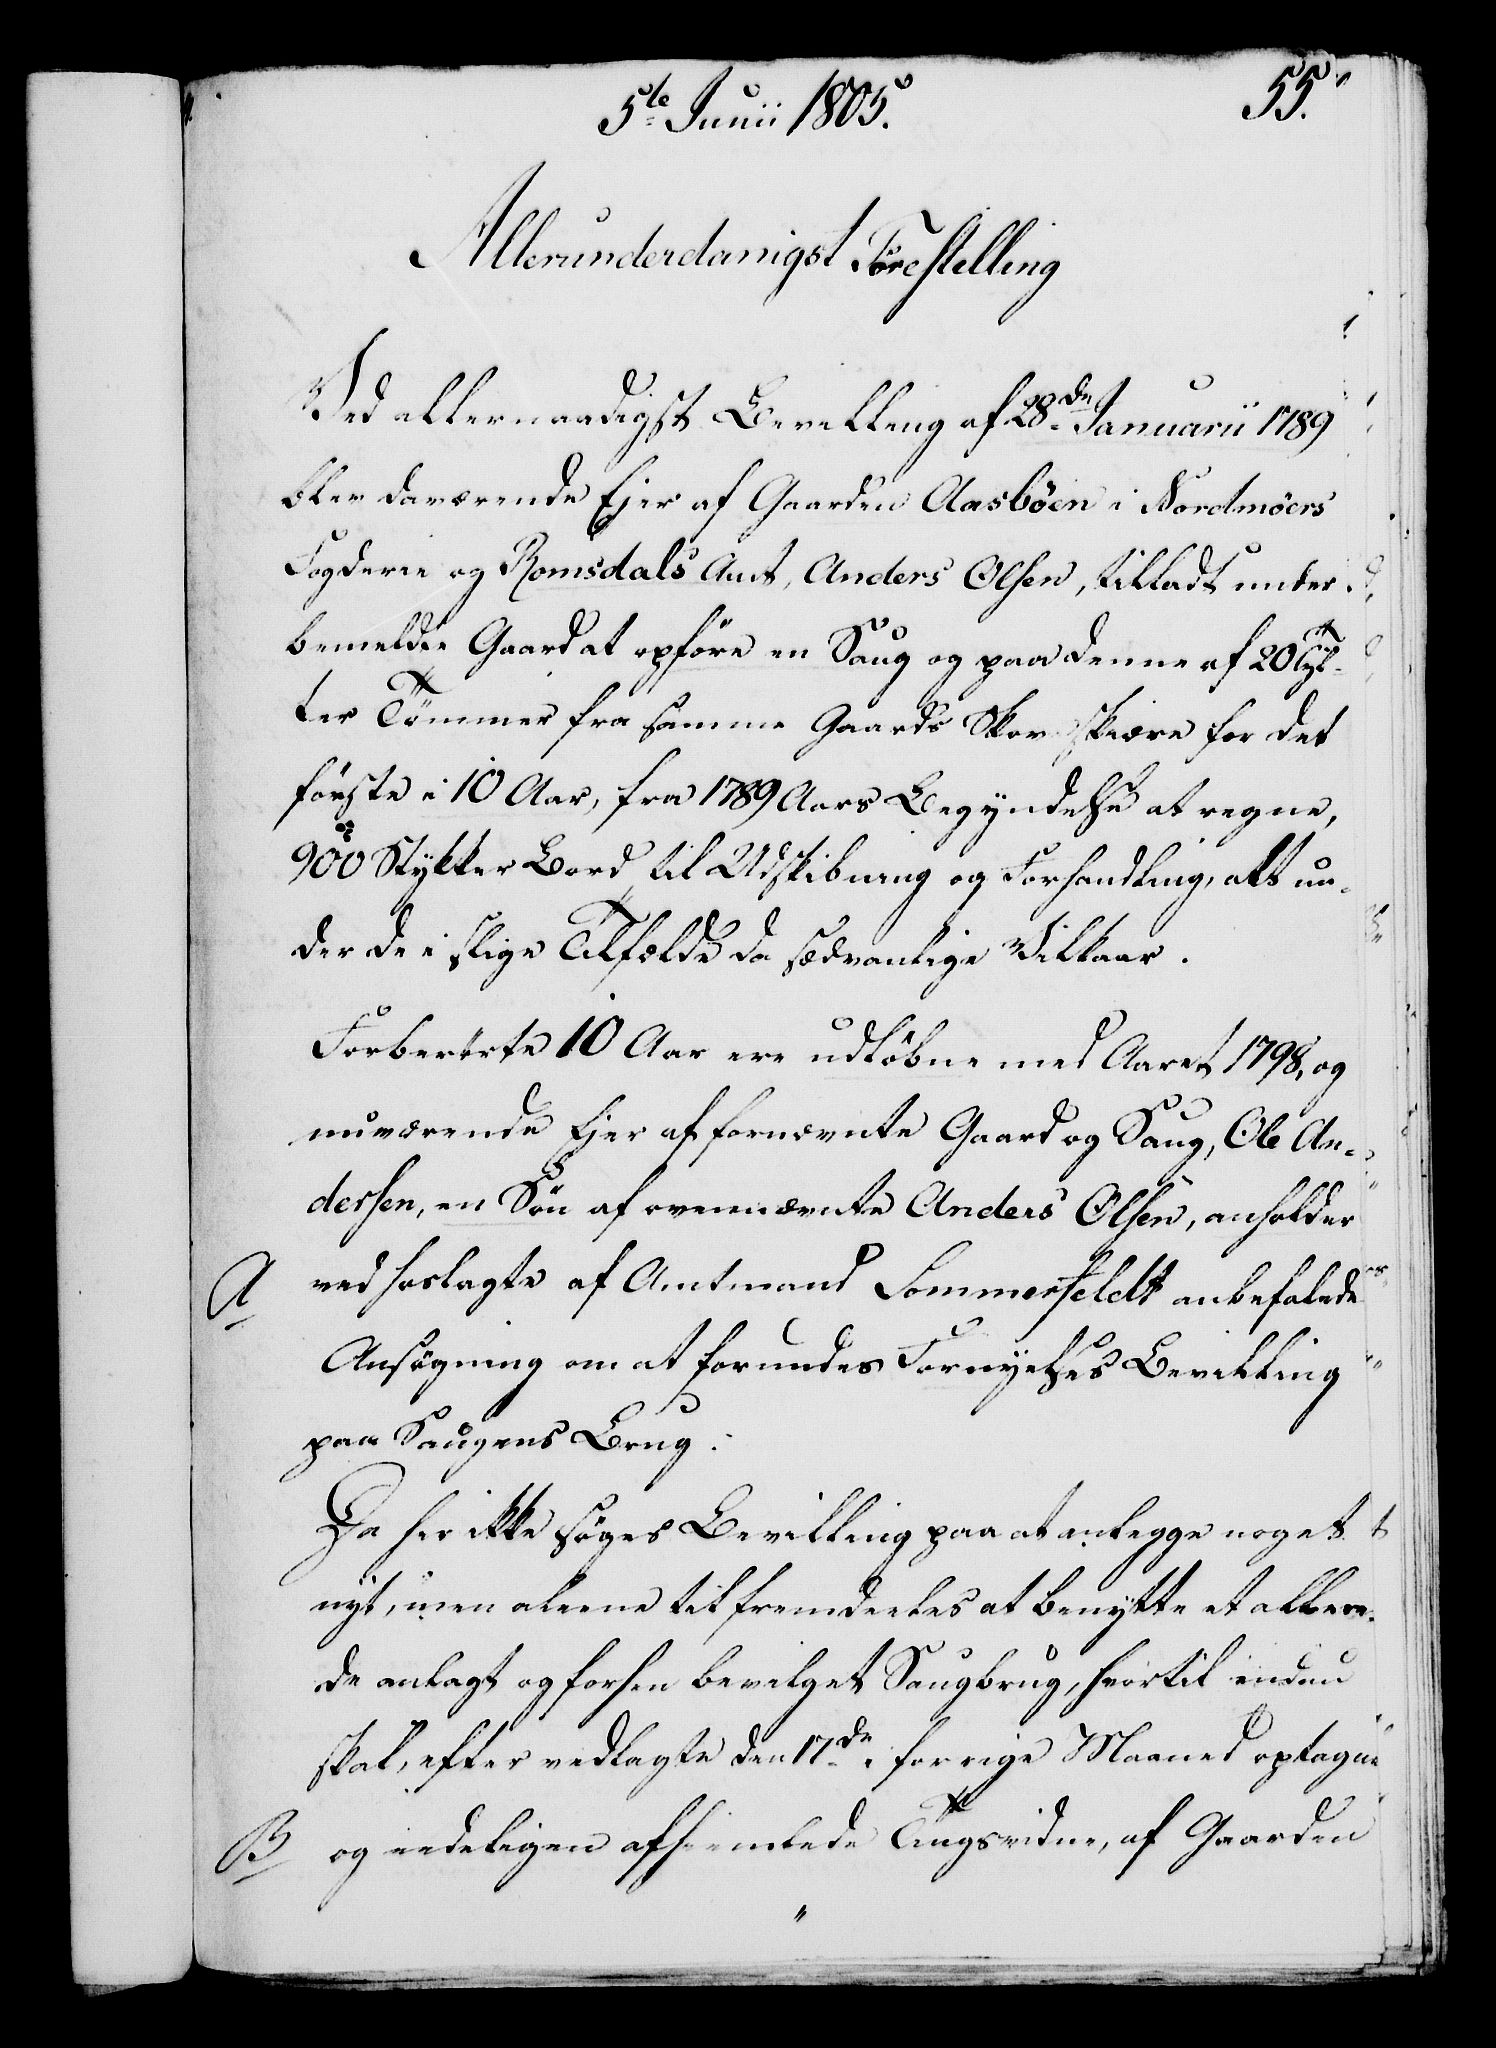 5te Junii 1805.
55.
Allerunderdanigst Forestelling
Ved allernaadigst Bevilling af 28de Januarii 1789
blev daværende Ejer af Gaarden Aasböen i Nordmöers
Fogderie og Romsdals Amt, Anders Olsen, tilladt under
bemeldte Gaard at opföre en Saug og paa denne af 20 Tyl-
ter Tömmer fra samme Gaards Skov skiære for det
förste i 10 Aar, fra 1789 Aars Begyndelse at regne,
900 Stykker Bord til Udskibning og Forhandling, alt un-
der de i slige Tilfælde da sædvanlige Vilkaar.
Forberörte 10 Aar ere udlöbne med Aaret 1798, og
nuværende Ejer af fornævnte Gaard og Saug, Ole An-
dersen, en Sön af ovennævnte Anders Olsen, anholder
A ved hoslagte af Amtmand Sommerfeldt anbefalede
Ansögning om at forundes Fornyelses Bevilling
paa Saugens Brug.
Da her ikke söges Bevilling paa at anlegge noget
nyt, men alene til fremdeles at benytte et allere-
de anlagt og forhen bevilget Saugbrug, hvortil endnu
skal, efter vedlagte den 17de i forrige Maaned optagne
B og eedeligen afhiemlede Tingsvidne, af Gaarden